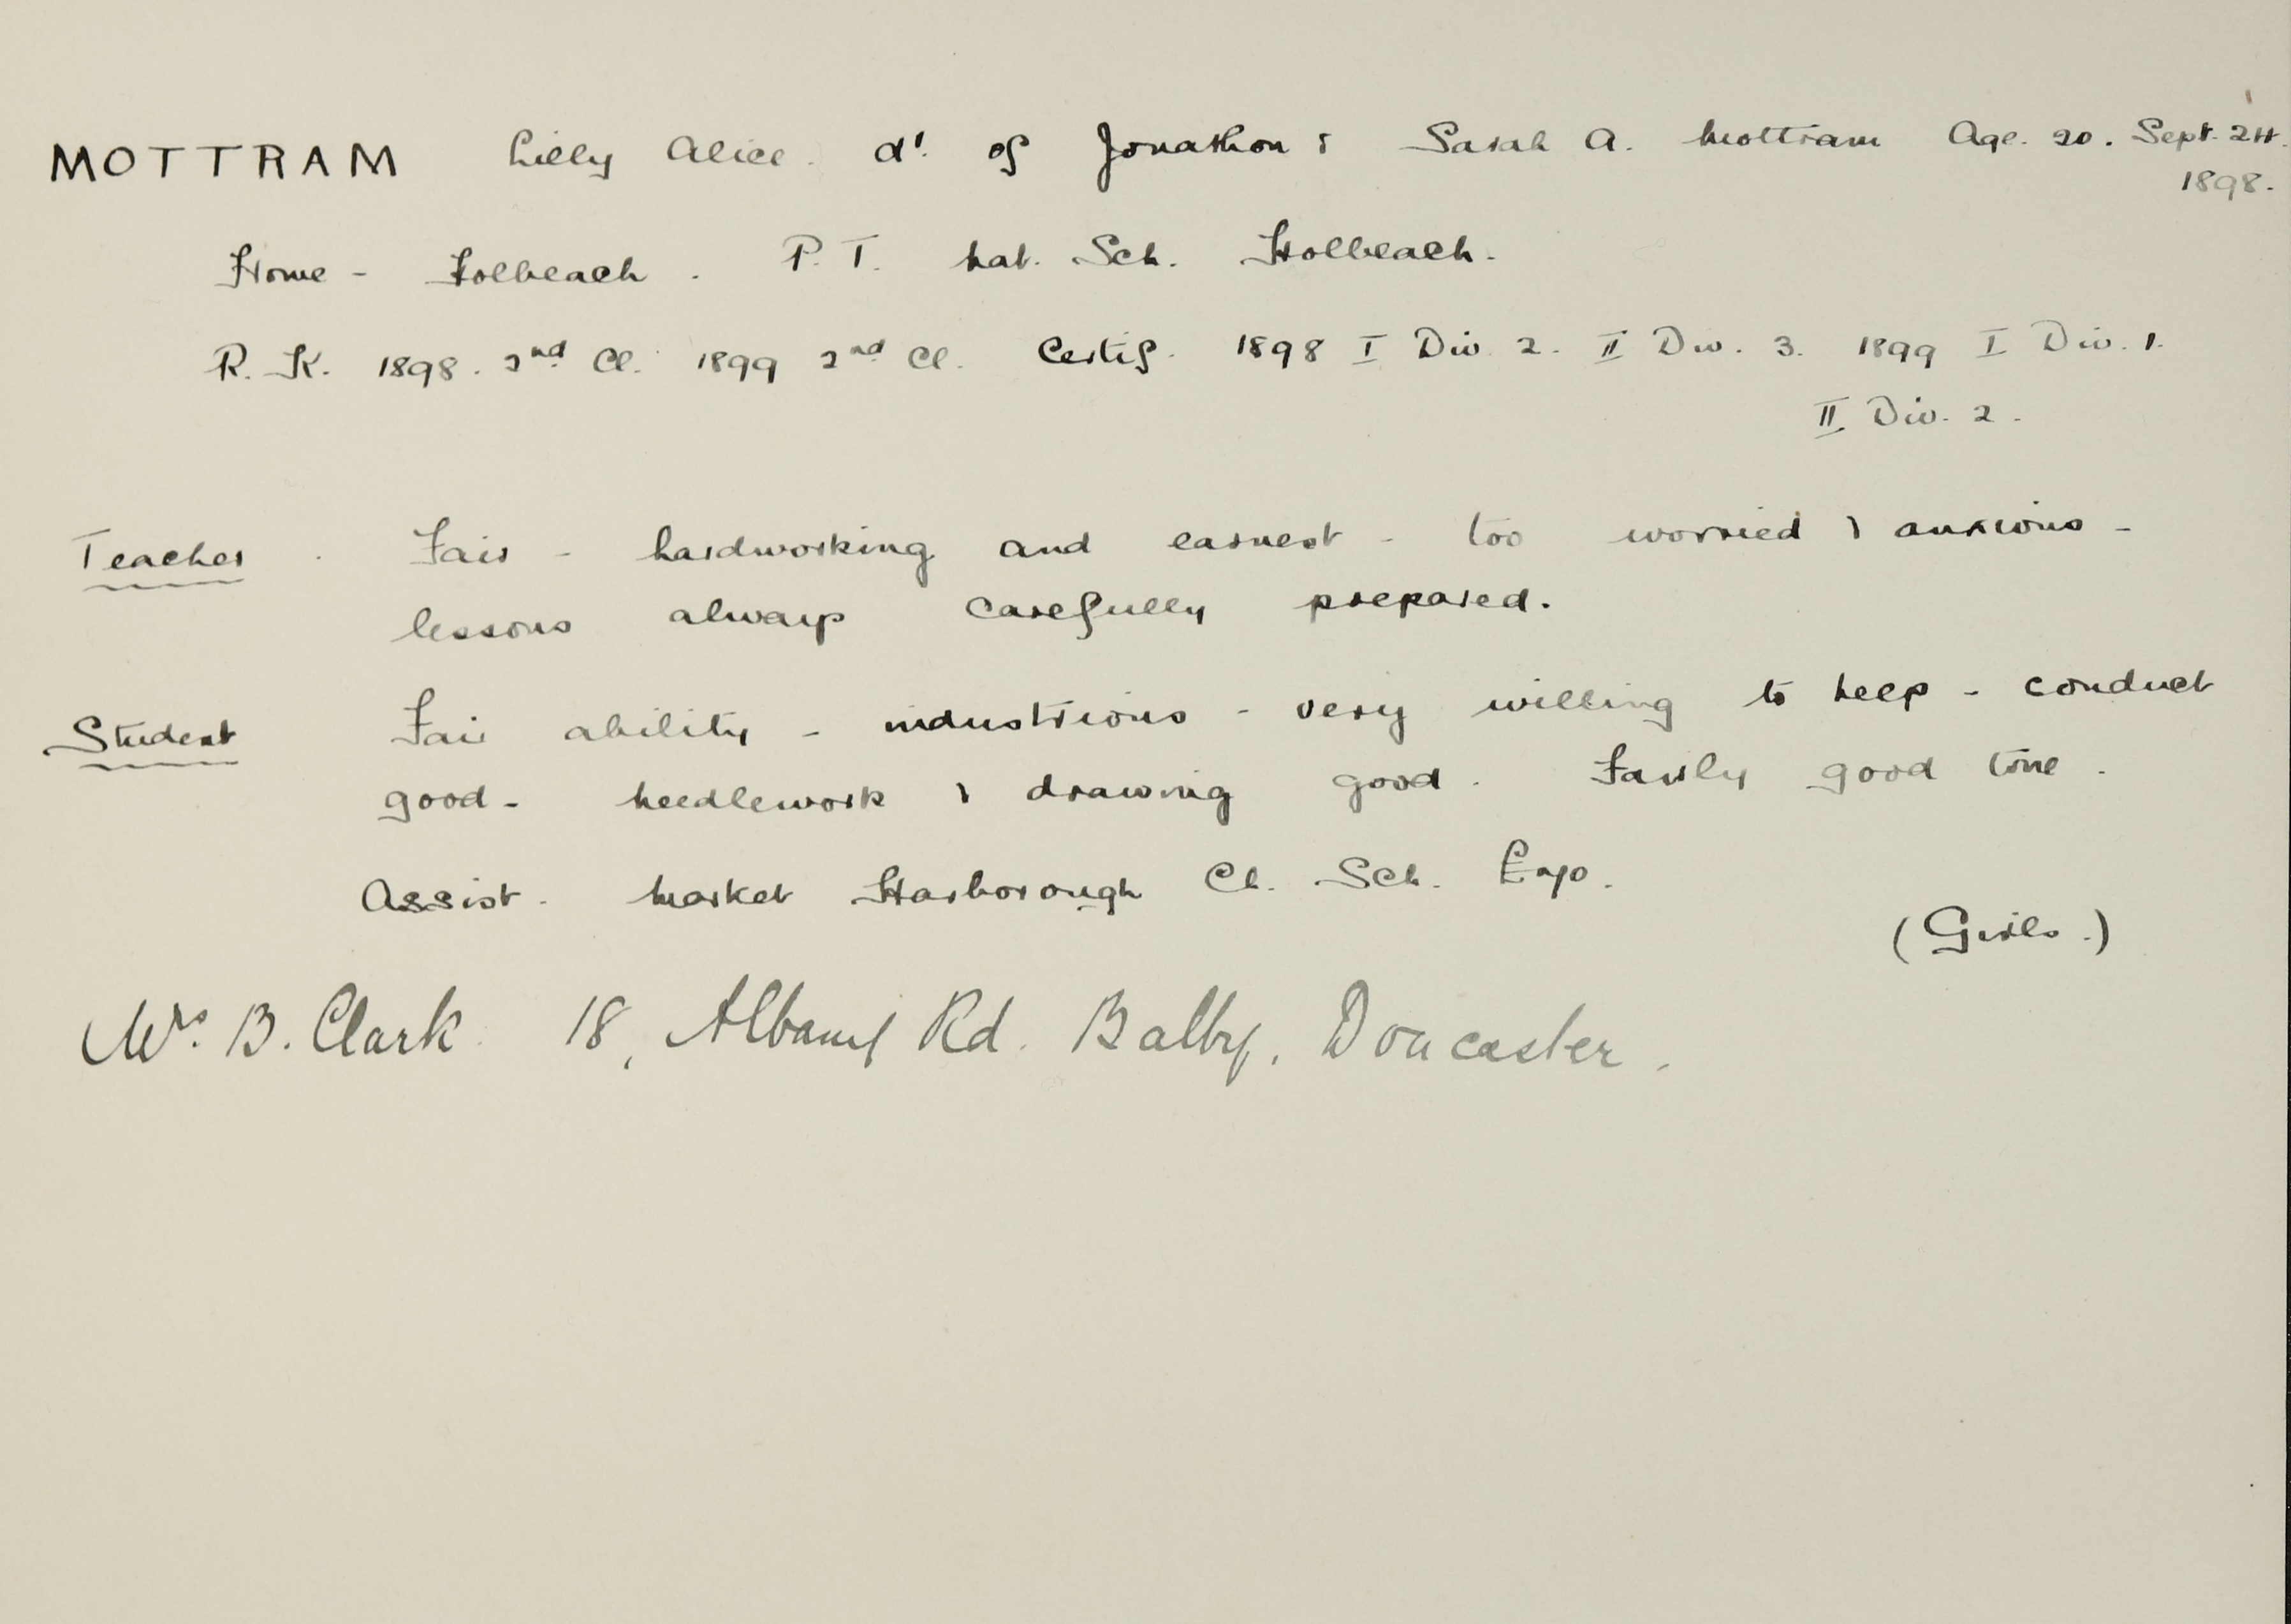 MOTTRAM Lilly Alice. dr. of Jonathon & Sarah A. Mottram Age. 20. Sept. 24.
1898.
Home - Holbeach. P.T. Nat. Sch. Holbeach.
R.K. 1898. 2nd Cl. 1899 2nd Cl. Certif. 1898 I Div. 2. II Div. 3. 1899 I Div. 1.
II Div. 2.
Teacher. Fair - hardworking and earnest - too worried & anxious -
lessons always carefully prepared.
Student Fair ability - industrious - very willing to help - conduct
good - needlework & drawing good. Fairly good tone.
Assist. Market Harborough Ch. Sch.
(Girls.)
Mrs. B. Clark 18, Albany Rd. Balby, Doncaster.